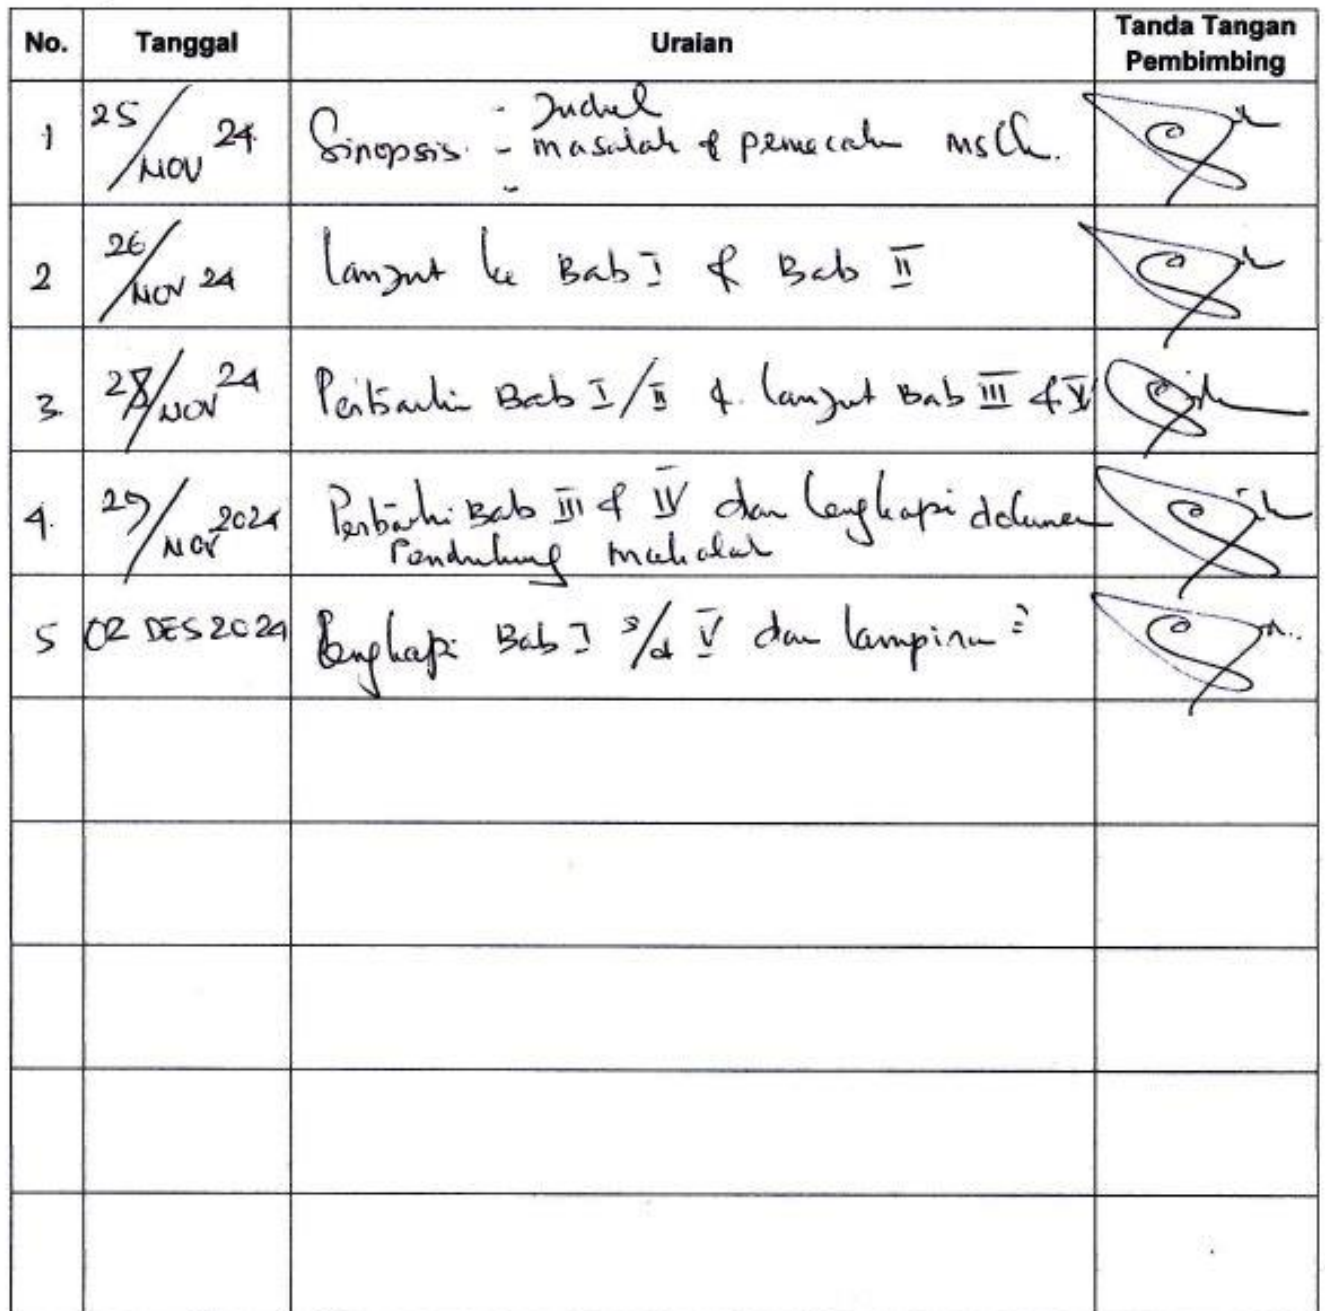 No. Tanggal Uraian Tanda Tangan Pembimbing
1 25/NOV 24 Sinopsis: - Judul
- masalah & pemecahn mslh.
-
2 26/NOV 24 lanjut ke Bab I & Bab II
3. 28/NOV 24 Perbaiki Bab I/II & lanjut Bab III &
4. 29/NOV 2024 Perbaiki Bab III & IV dan lengkapi dokumen
Pendukung makalah
5 02 DES 2024 lengkapi Bab I s/d V dan lampiran